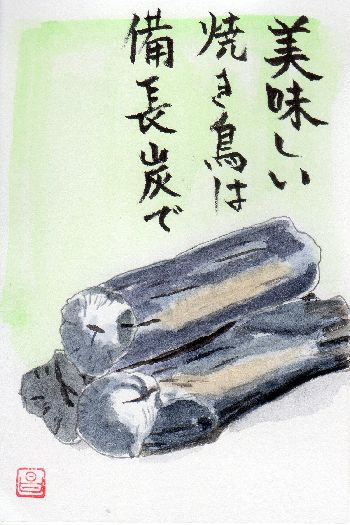 美味しい
焼き鳥は
備長炭で